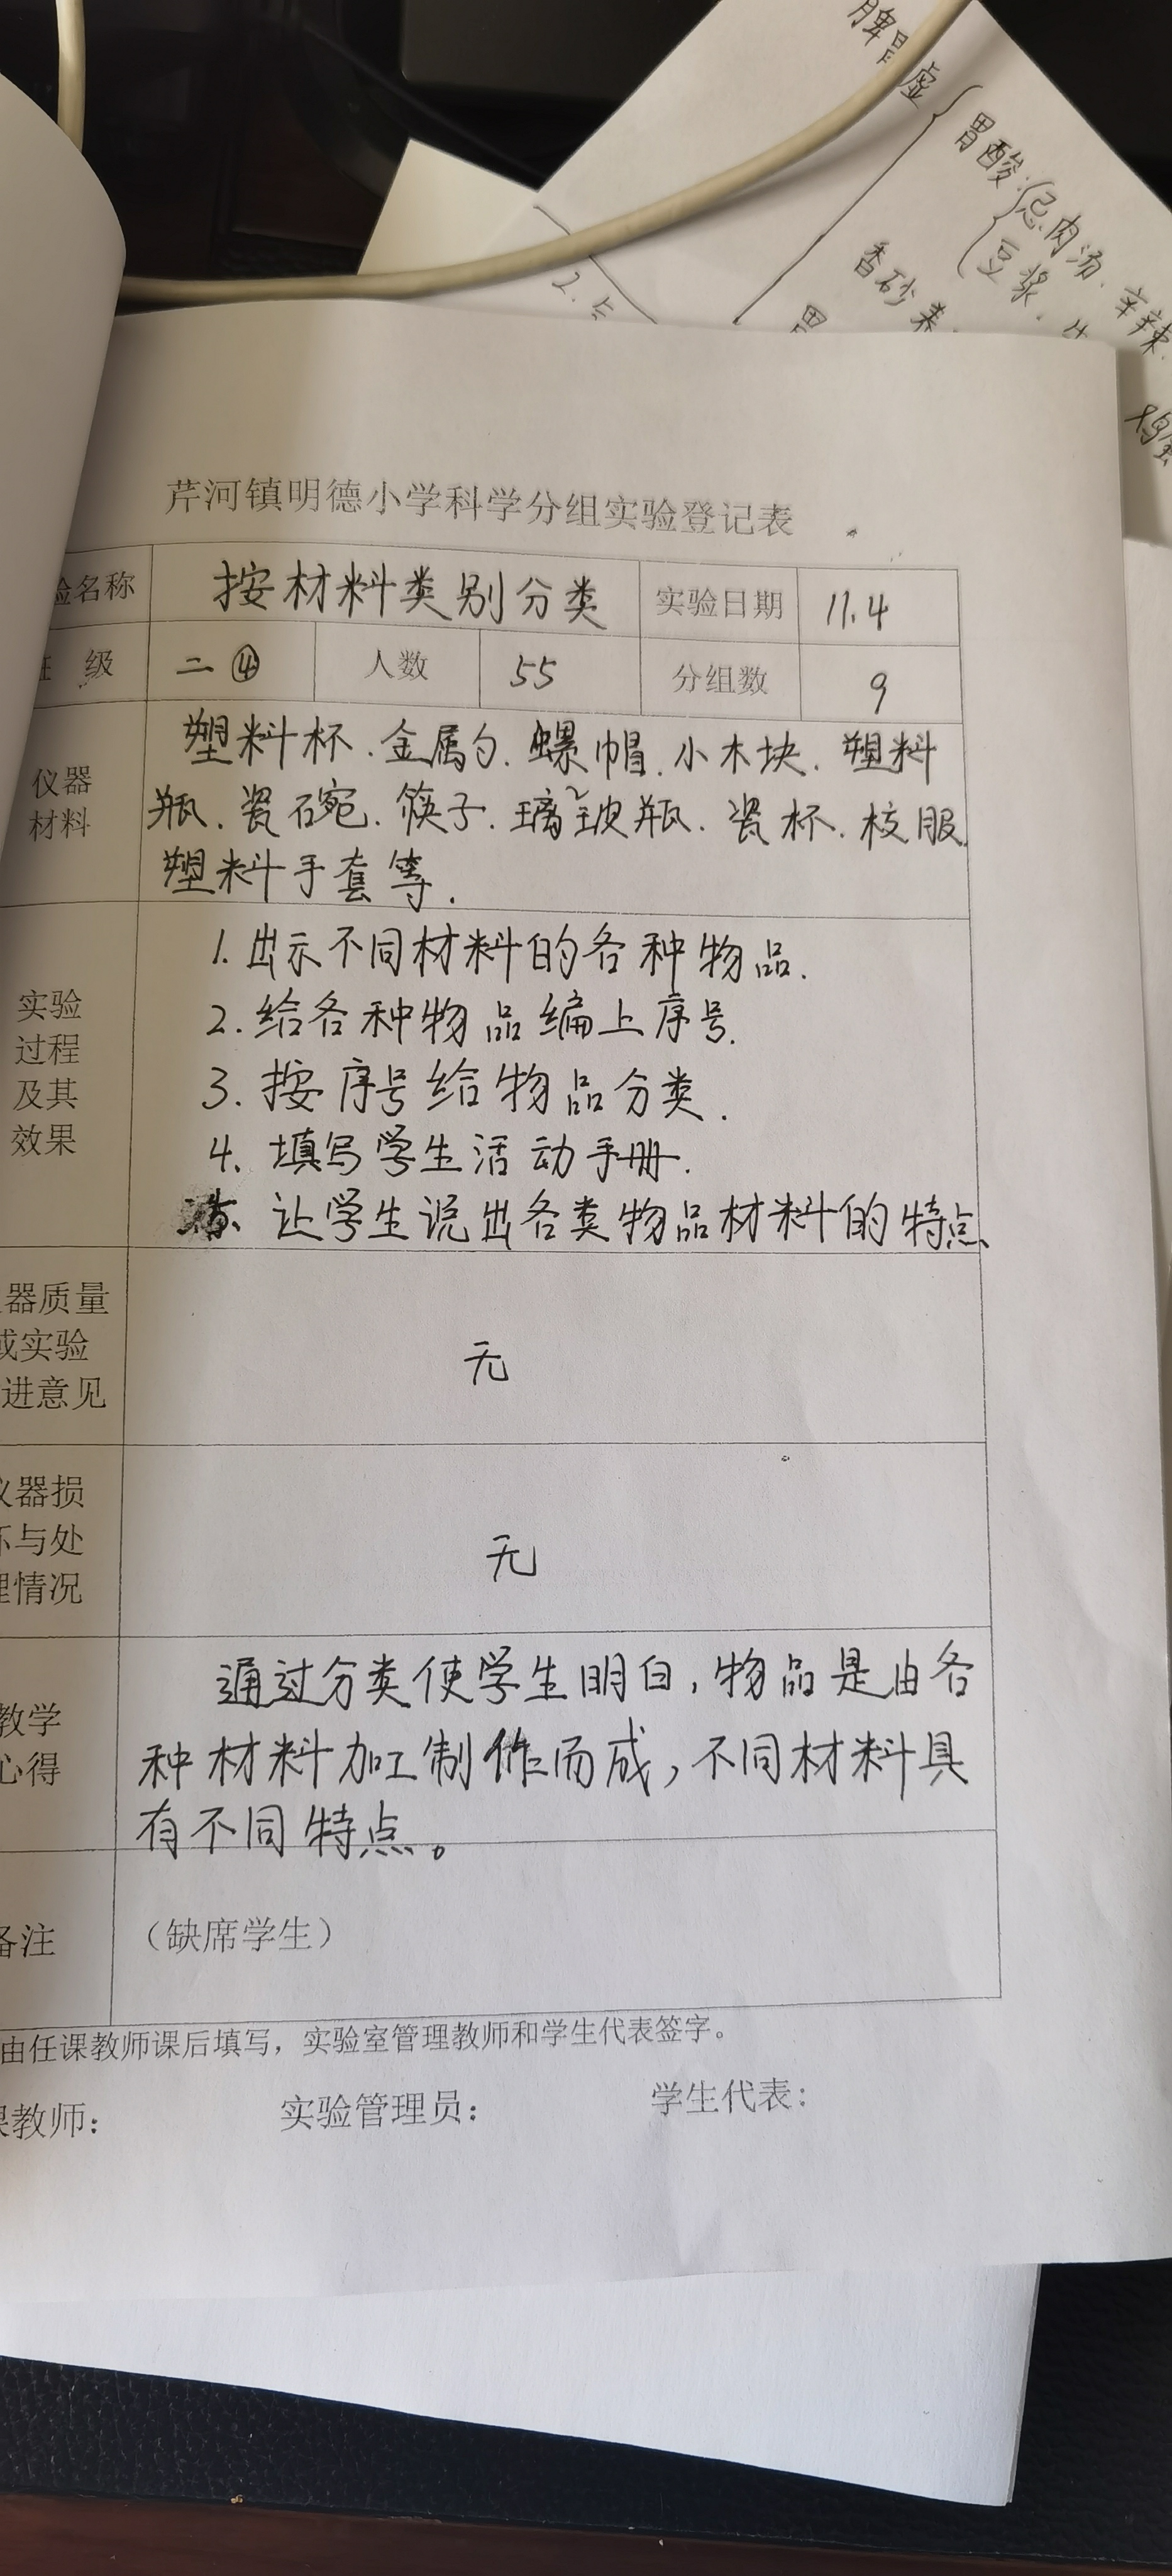 脾胃虚
胃酸:忌肉汤、辛辣
豆浆、
香砂养
胃
2.
芹河镇明德小学科学分组实验登记表
验名称 按材料类别分类 实验日期 11.4
级 二④ 人数 55 分组数 9
仪器
材料
塑料杯.金属勺.螺帽.小木块.塑料
瓶.瓷碗.筷子.璃玻瓶.瓷杯.校服
塑料手套等.
实验
过程
及其
效果
1.出示不同材料的各种物品.
2.给各种物品编上序号.
3.按序号给物品分类.
4、填写学生活动手册.
5、让学生说出各类物品材料的特点、
器质量
或实验
进意见
无
仪器损
坏与处
理情况
无
教学
心得
通过分类使学生明白,物品是由各
种材料加工制作而成,不同材料具
有不同特点。
备注 (缺席学生)
由任课教师课后填写,实验室管理教师和学生代表签字。
课教师: 实验管理员: 学生代表: